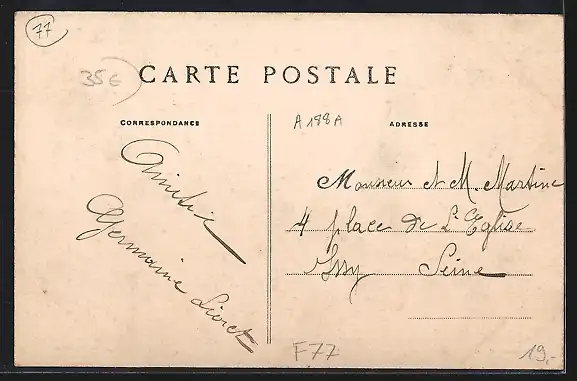 77
35€
CARTE POSTALE
CORRESPONDANCE
A188A
ADRESSE
Amitié
Germaine Lioret
Monsieur et M. Martine
4 place de L'Eglise
Issy Seine
F77
19.-